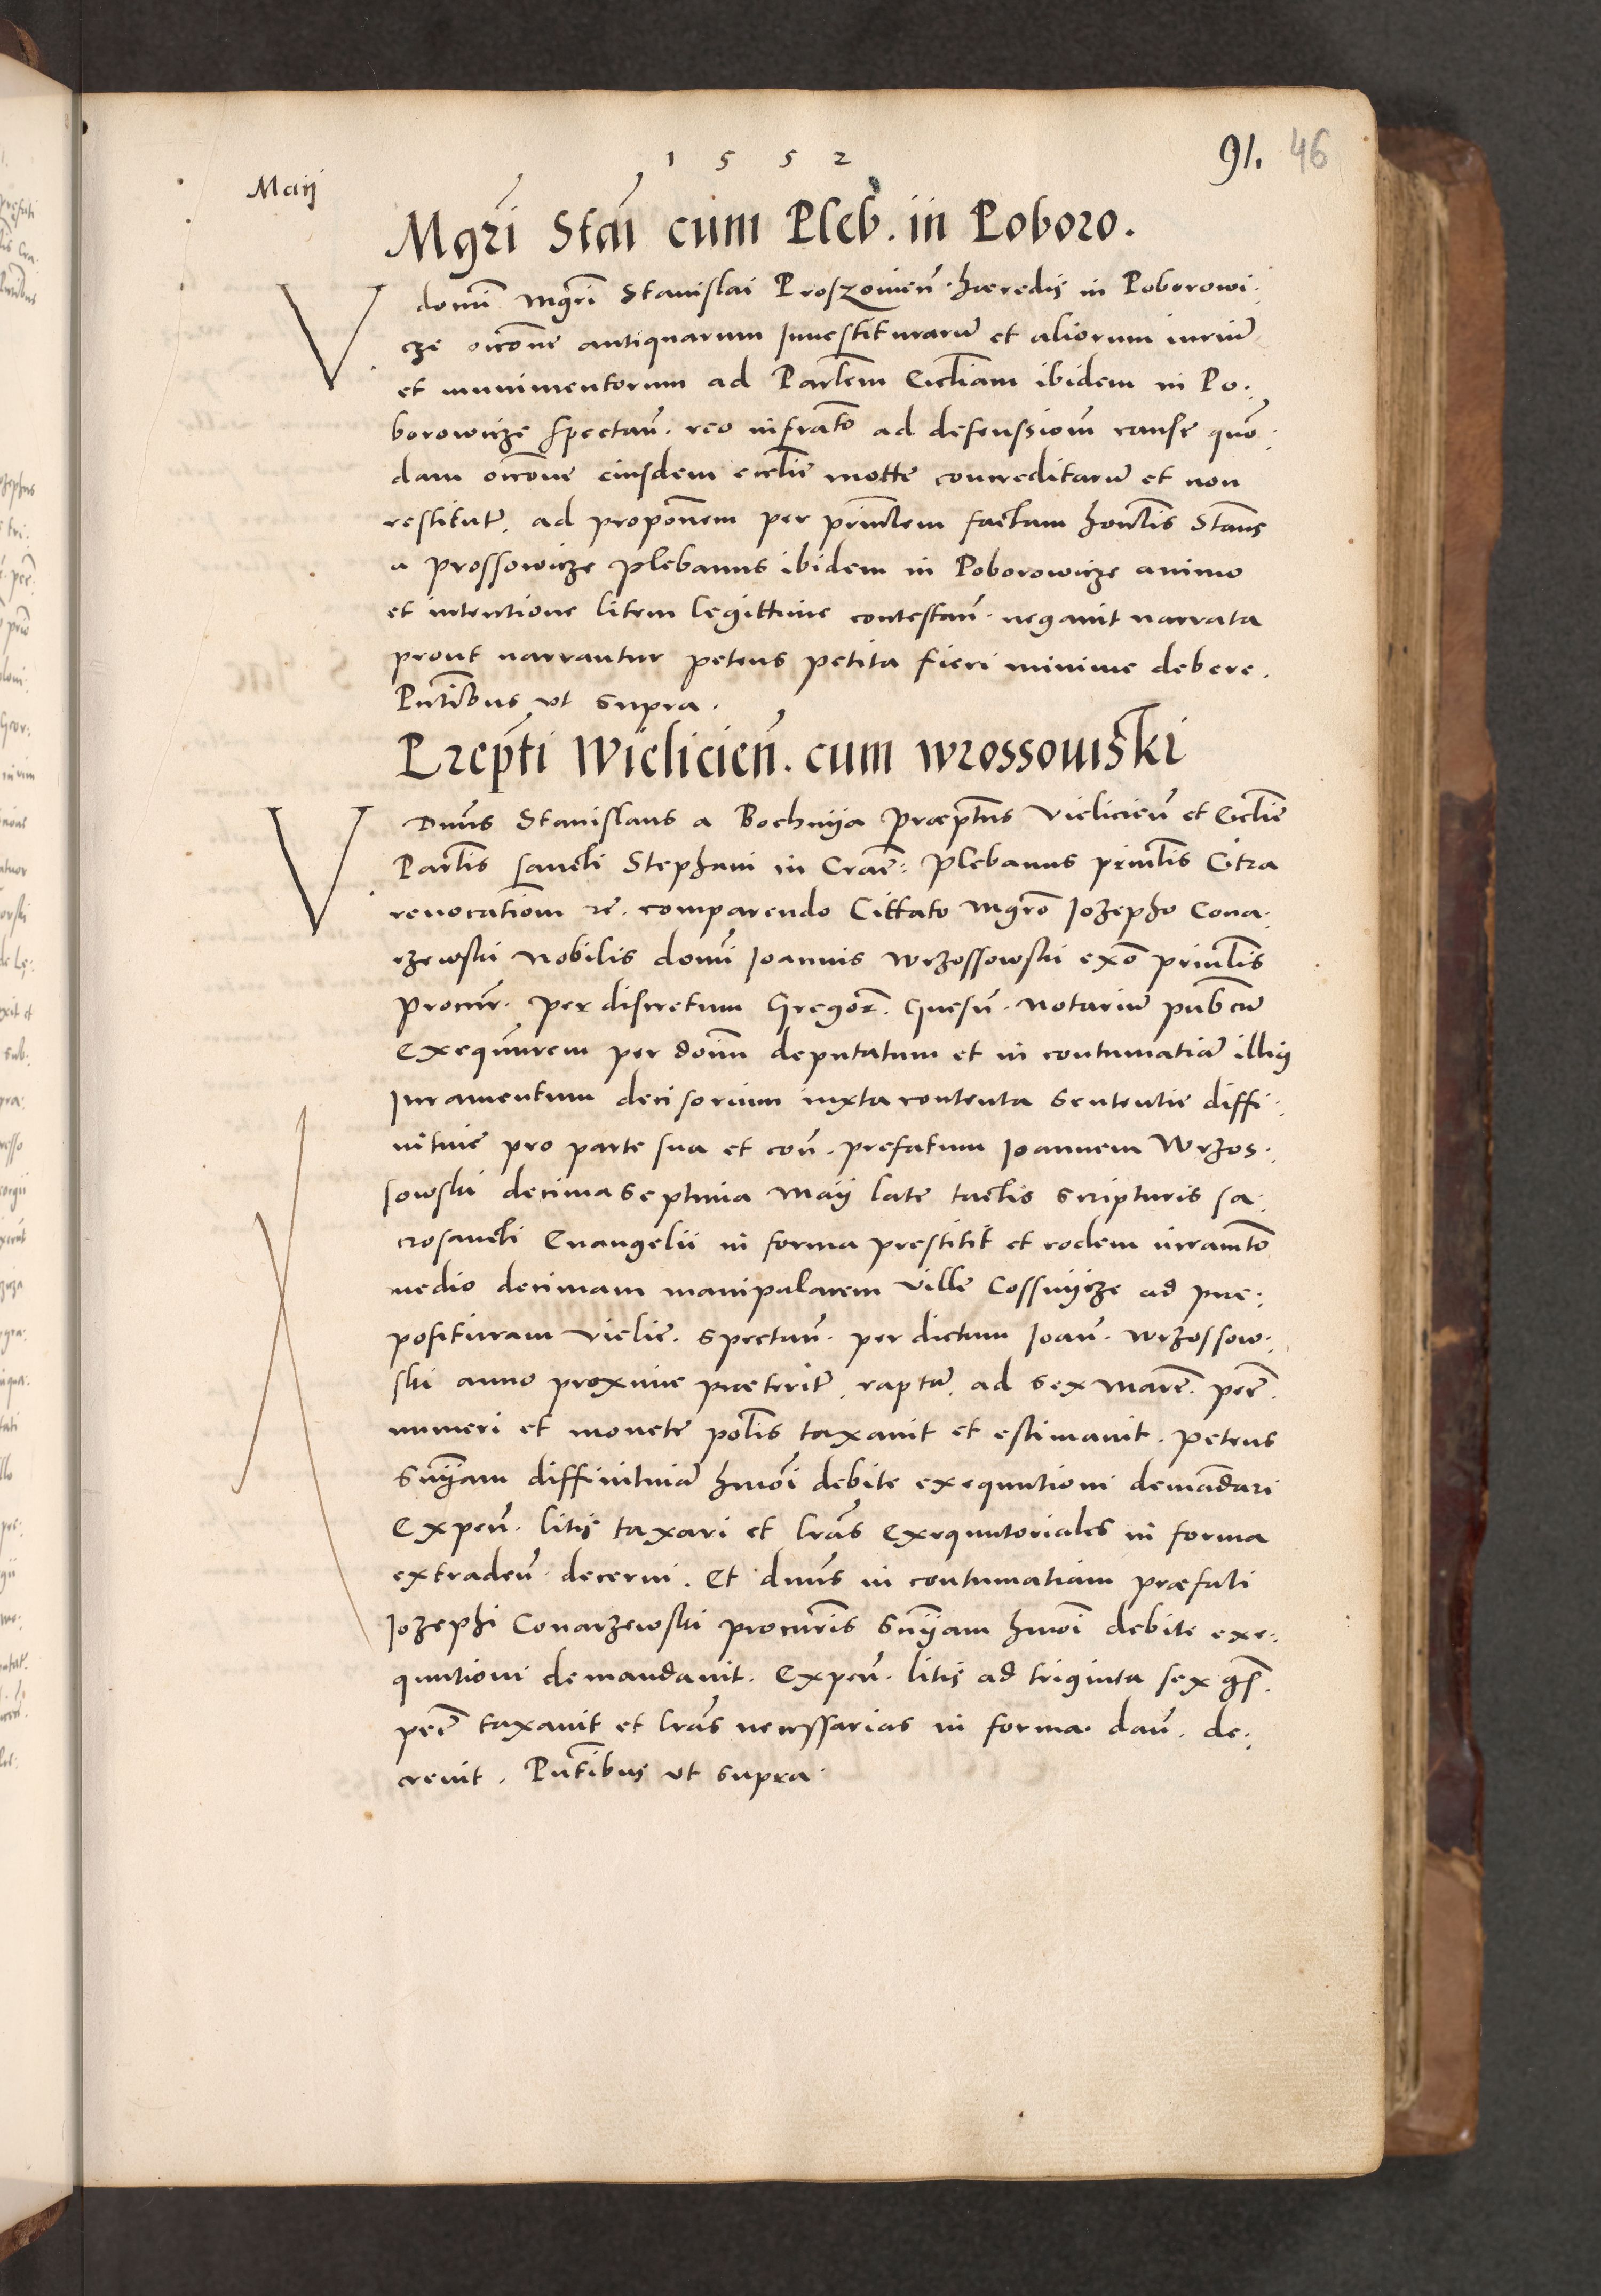 1 5 5 2
91. 46
Maij
Mgri Stai cum Pleb. in Poboro.
V domi Mgri Stanislai Proszowien. hæredis in Poborowi:
cze oicone antiquarum Inuestiturarum et aliorum iurium
et munimentorum ad Partem Ecctiam ibidem in Po:
borowicze spectan. reo infrato ad defenssionem cause quon:
dam oicone eiusdem ecctie motte concreditarum et non
restitutar. ad proponem per printem factam hontis Stans
a Prossowicze Plebanus ibidem in Poborowicze animo
et intentione litem legittime contestan. negauit narrata
prout narrantur petens petita fieri minime debere.
Pntibus vt supra.
Prepti Wielicien. cum wrossowiski
V Dnus Stanislaus a Bochnija Præptus Vielicien et Ecctie
Partis sancti Stephani in Crac: Plebanus printis Citra
reuocationem rc. comparendo Cittato Mgro Iozepho Cona:
rzewski Nobilis domi Ioannis Wrzossowski exo printis
Procur. per discretum Gregor. Gnesn. Notarium pubcum
Exequutorem per donum deputatum et in contumatiam illius
Iuramentum decisorium iuxta contenta sententie diffi:
nitiue pro parte sua et con. prefatum Ioannem Wrzos:
sowski decima septima Maij late tactis scripturis sa:
crosancti Euangelii in forma prestitit et eodem iuramto
medio decimam manipularem ville Cossmijcze ad pre:
posituram Vielic. spectan. per dictum Ioan. Wrzossow:
ski anno proxime præteriter. raptam. ad sex marc. pec.
numeri et monete polis taxauit et estimauit. petens
Sniam diffinitiuam hmoi debite exequutioni demandari
Expen. litis taxari et lras Exequutoriales in forma
extraden. decerni. Et dnus in contumatiam præfati
Iozephi Conarzewski procuris Sniam hmoi debite exe:
quutioni demandauit. Expen. litis ad triginta sex gs.
pec taxauit et lras necessarias in forma dan. de:
creuit. Pntibus vt supra.